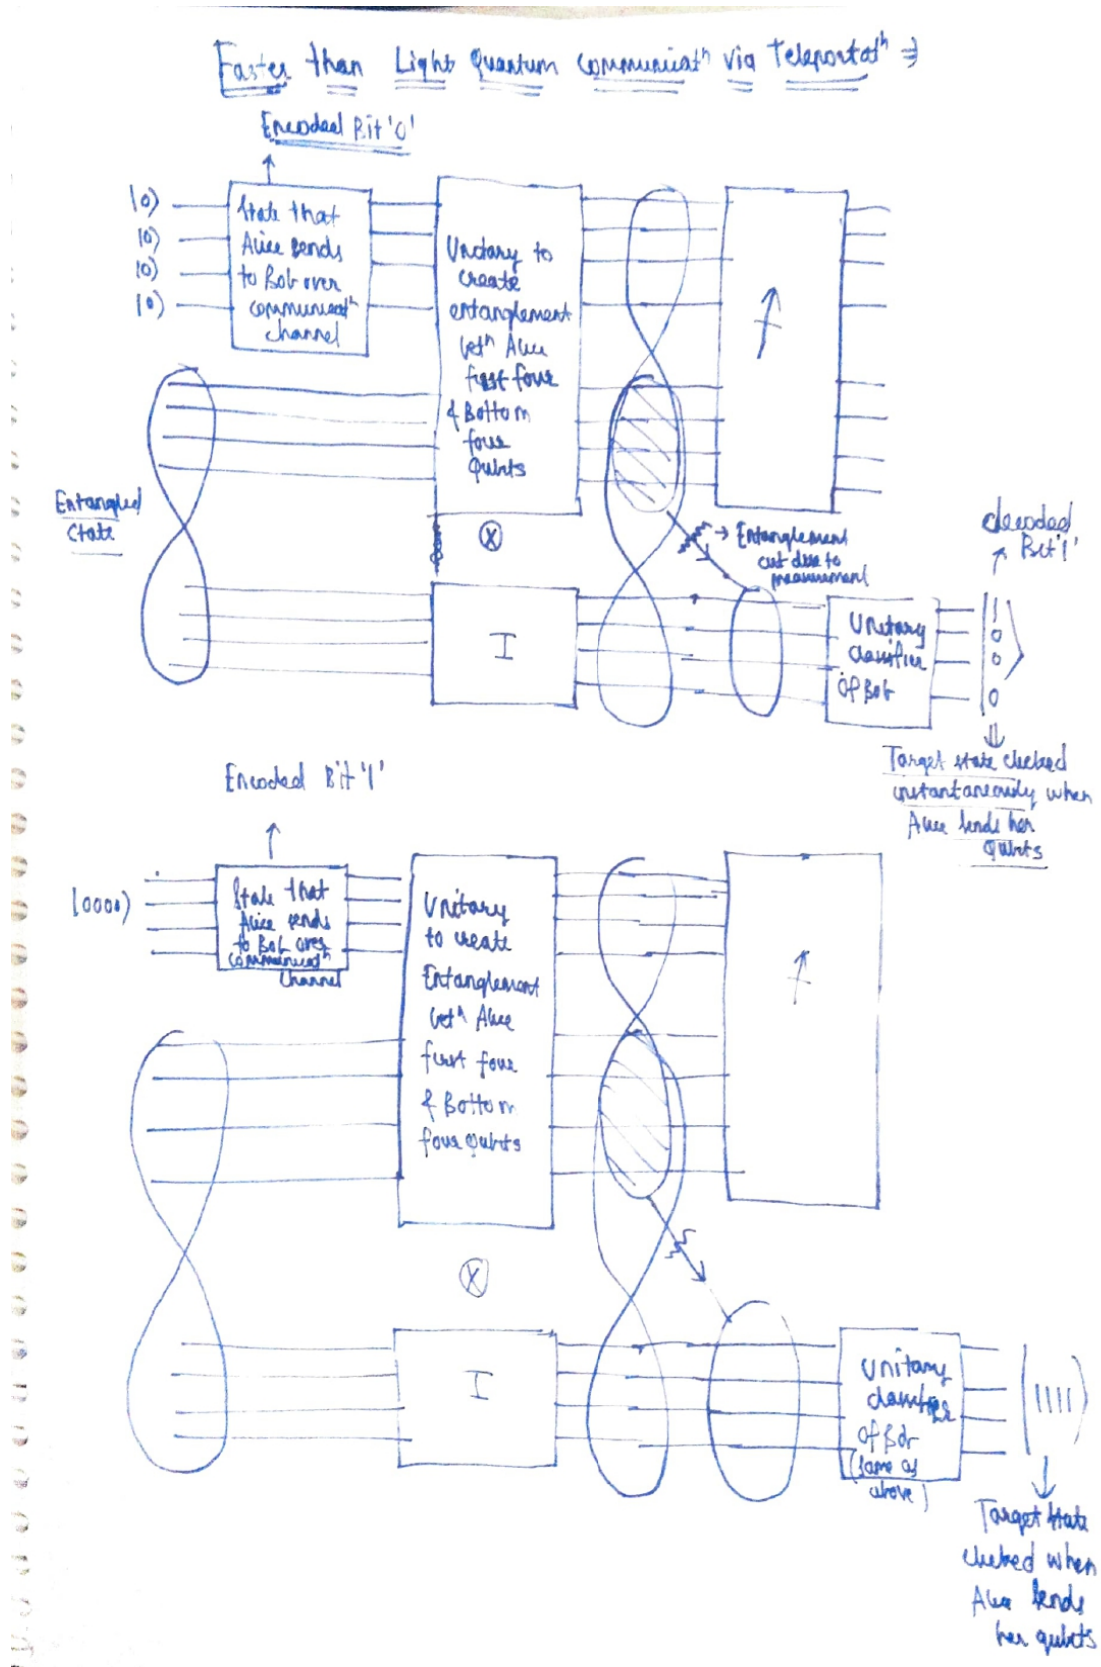 Faster than Light Quantum Communicatⁿ via Teleportatⁿ ⇒
Encoded Bit '0'
|0⟩
|0⟩
|0⟩
|0⟩
State that
Alice sends
to Bob over
communicatⁿ
channel
Unitary to
create
entanglement
betⁿ Alice
first four
& Bottom
four
Qubits
Entangled
State
⊗
I
→ Entanglement
cut due to
measurement
Unitary
classifier
of Bob
decoded
Bit '1'
1
0
0
0
Target state checked
instantaneously when
Alice sends her
Qubits
Encoded Bit '1'
|0000⟩
State that
Alice sends
to Bob over
communicatⁿ
channel
Unitary
to create
Entanglement
betⁿ Alice
first four
& Bottom
four qubits
⊗
I
Unitary
classifier
of Bob
(same as
above)
|1111⟩
Target state
checked when
Alice sends
her qubits